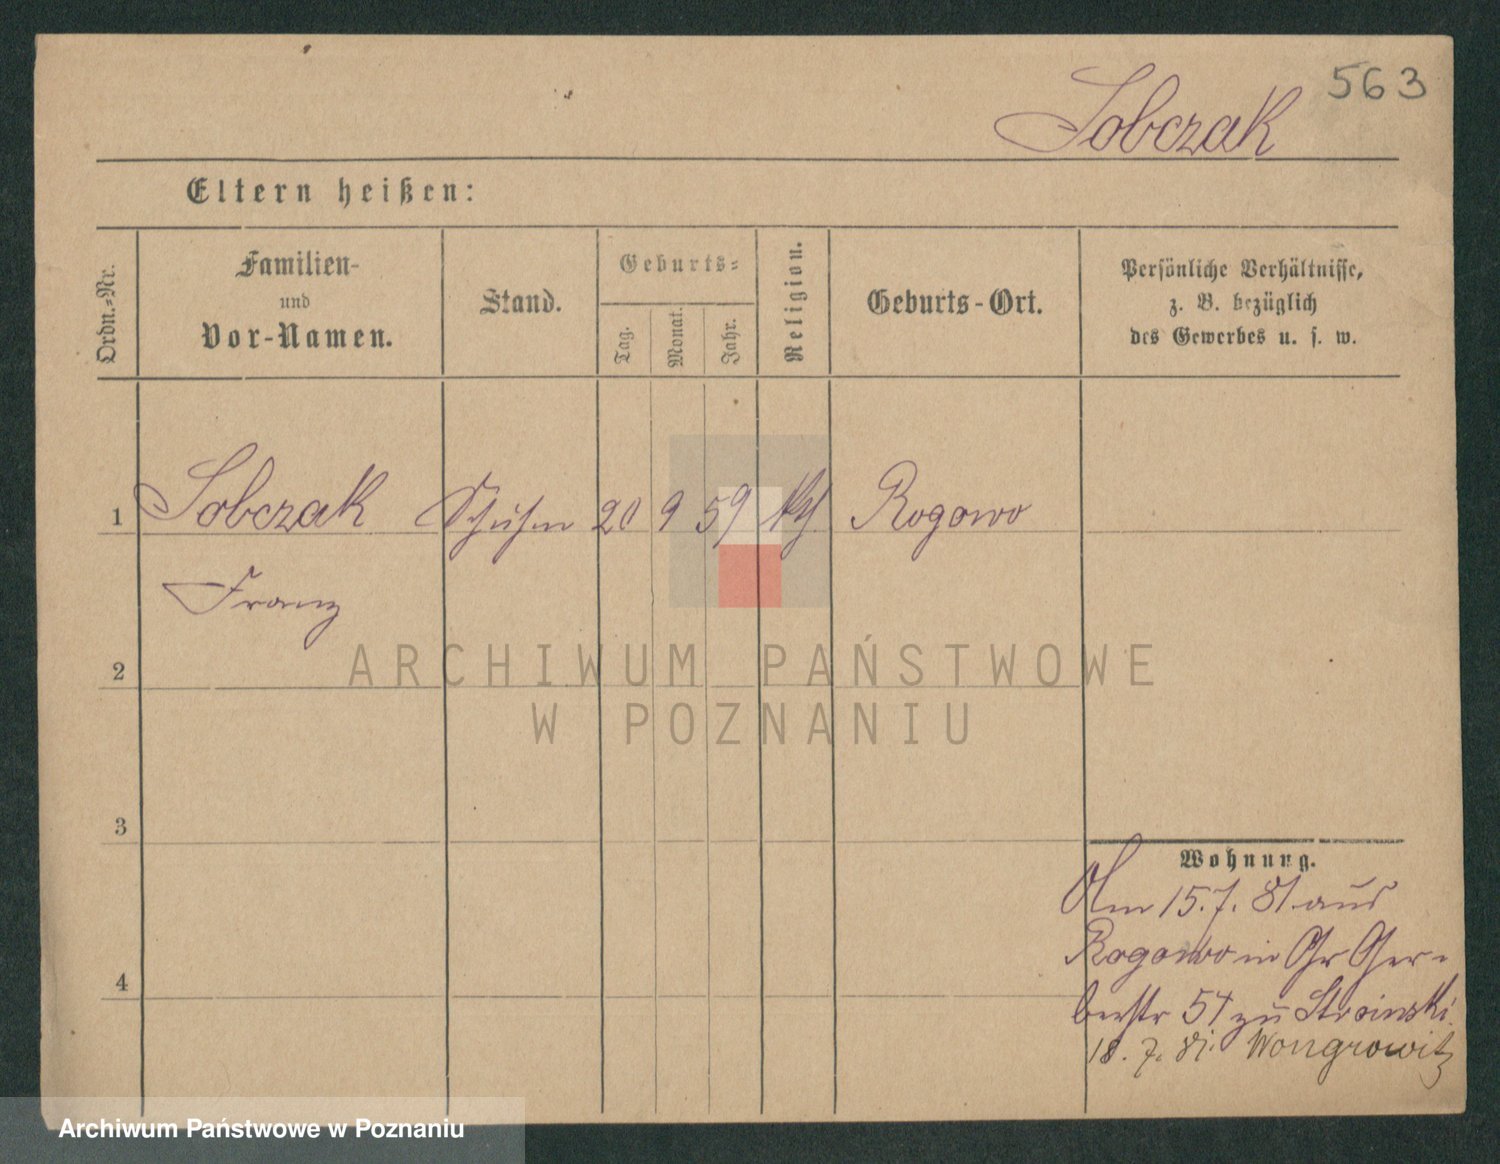 563
Sobczak
Eltern heißen:
Ordn.-Nr.
Familien-
und
Vor-Namen.
Stand.
Geburts-
Tag.
Monat.
Jahr.
Religion.
Geburts-Ort.
Persönliche Verhältnisse,
z. B. bezüglich
des Gewerbes u. s. w.
1 Sobczak Schuhm 20 9 59 Rogowo
Franz
2
3
4
Wohnung.
Am 15.7.81 aus
Rogowo in Gr Ger-
berstr 51 zu Stroinski.
18.7.81. Wongrowitz
ARCHIWUM PAŃSTWOWE
W POZNANIU
Archiwum Państwowe w Poznaniu